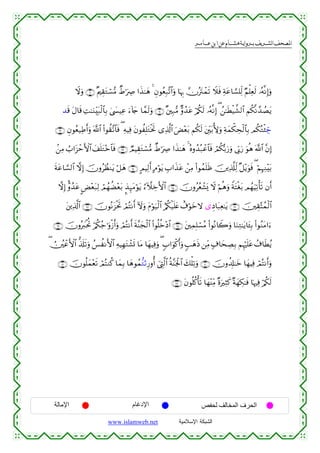 المصحف الشريف برواية هشام عن ابن عامر
وَإِنَّهُۥ لَعِلۡمٞ لِّلسَّاعَةِ فَلَا تَمۡتَرُنَّ بِهَا وَٱتَّبِعُونِۚ هَٰذَا صِرَٰطٞ مُّسۡتَقِيمٞ ۝ وَلَا
يَصُدَّنَّكُمُ ٱلشَّيۡطَٰنُۖ إِنَّهُۥ لَكُمۡ عَدُوّٞ مُّبِينٞ ۝ وَلَمَّا جَآءَ عِيسَىٰ بِٱلۡبَيِّنَٰتِ قَالَ قَد
جِّئۡتُكُم بِٱلۡحِكۡمَةِ وَلِأُبَيِّنَ لَكُم بَعۡضَ ٱلَّذِي تَخۡتَلِفُونَ فِيهِۖ فَٱتَّقُواْ ٱللَّهَ وَأَطِيعُونِ ۝
إِنَّ ٱللَّهَ هُوَ رَبِّي وَرَبُّكُمۡ فَٱعۡبُدُوهُۚ هَٰذَا صِرَٰطٞ مُّسۡتَقِيمٞ ۝ فَٱخۡتَلَفَ ٱلۡأَحۡزَابُ مِنۢ
بَيۡنِهِمۡۖ فَوَيۡلٞ لِّلَّذِينَ ظَلَمُواْ مِنۡ عَذَابِ يَوۡمٍ أَلِيمٍ ۝ هَلۡ يَنظُرُونَ إِلَّا ٱلسَّاعَةَ
أَن تَأۡتِيَهُم بَغۡتَةٗ وَهُمۡ لَا يَشۡعُرُونَ ۝ ٱلۡأَخِلَّآءُ يَوۡمَئِذِۭ بَعۡضُهُمۡ لِبَعۡضٍ عَدُوٌّ إِلَّا
ٱلۡمُتَّقِينَ ۝ يَٰعِبَادِي لَا خَوۡفٌ عَلَيۡكُمُ ٱلۡيَوۡمَ وَلَآ أَنتُمۡ تَحۡزَنُونَ ۝ ٱلَّذِينَ
ءَامَنُواْ بِـَٔايَٰتِنَا وَكَانُواْ مُسۡلِمِينَ ۝ ٱدۡخُلُواْ ٱلۡجَنَّةَ أَنتُمۡ وَأَزۡوَٰجُكُمۡ تُحۡبَرُونَ ۝
يُطَافُ عَلَيۡهِم بِصِحَافٖ مِّن ذَهَبٖ وَأَكۡوَابٖۖ وَفِيهَا مَا تَشۡتَهِيهِ ٱلۡأَنفُسُ وَتَلَذُّ ٱلۡأَعۡيُنُۖ
وَأَنتُمۡ فِيهَا خَٰلِدُونَ ۝ وَتِلۡكَ ٱلۡجَنَّةُ ٱلَّتِيٓ أُورِثتُّمُوهَا بِمَا كُنتُمۡ تَعۡمَلُونَ ۝
لَكُمۡ فِيهَا فَٰكِهَةٞ كَثِيرَةٞ مِّنۡهَا تَأۡكُلُونَ ۝
الحرف المخالف لحفص الإدغام الإمالة
الشبكة الإسلامية www.islamweb.net